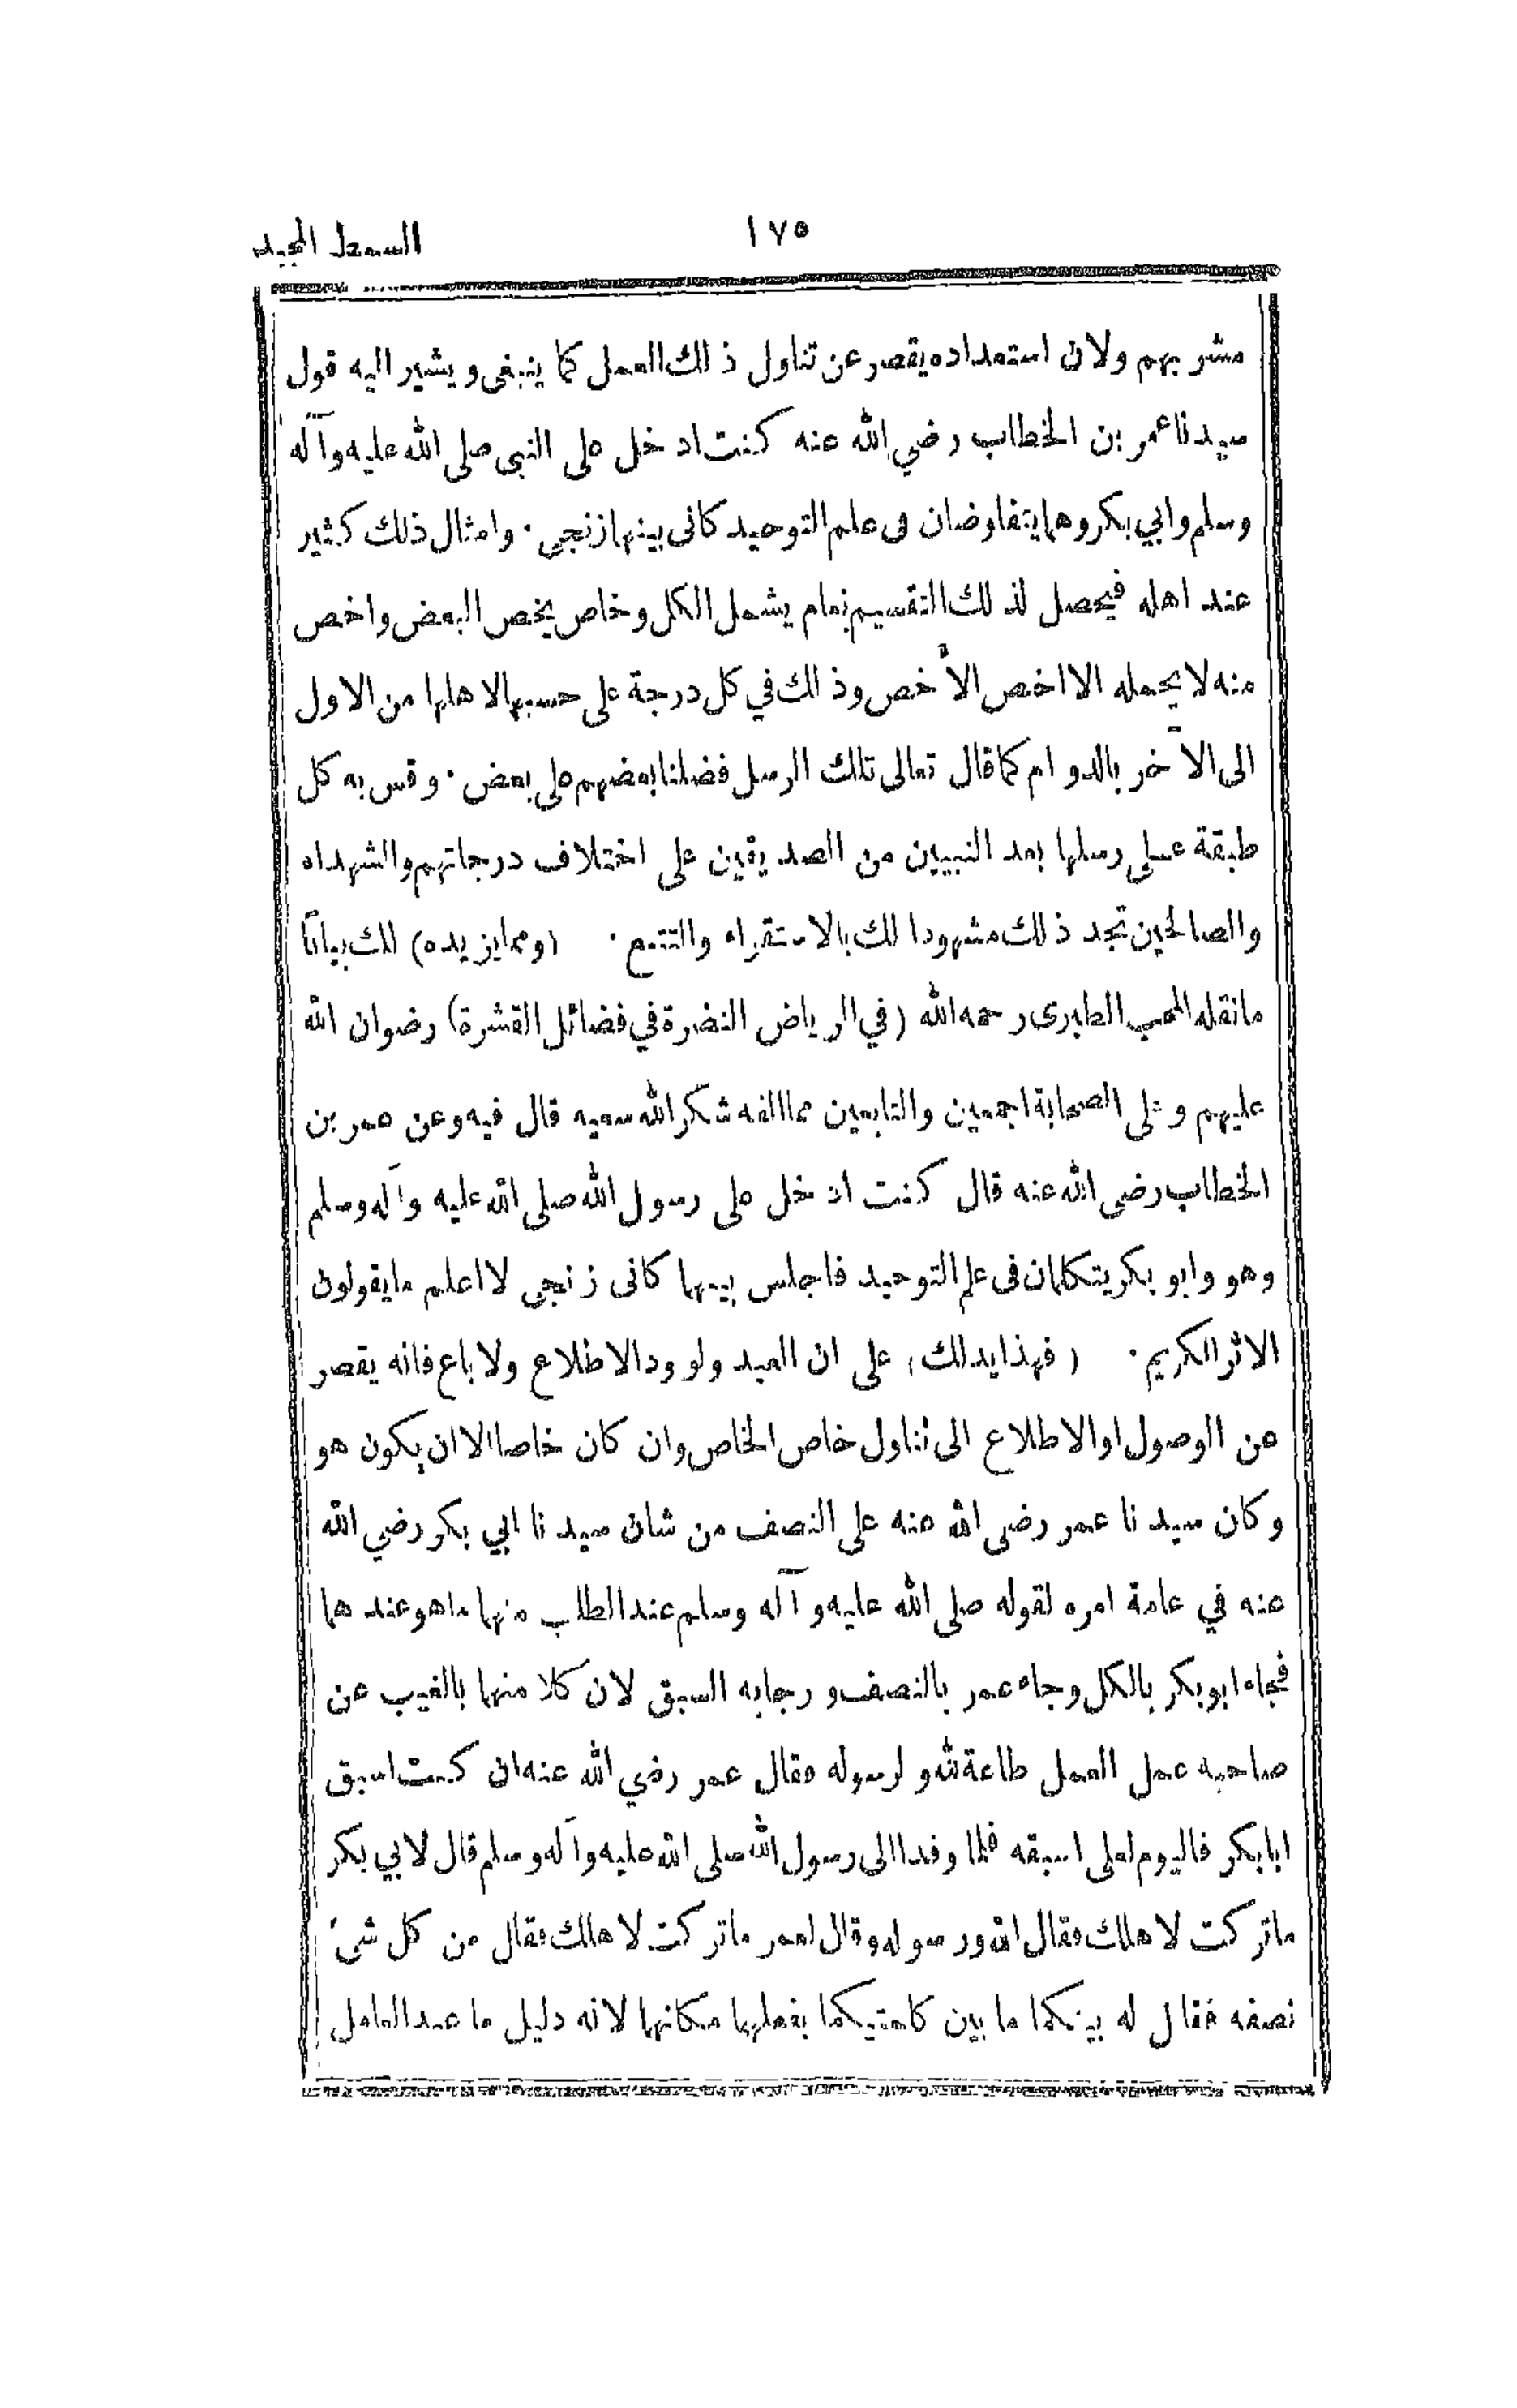 ١٧٥
السمط المجيد
مشربهم ولان استعداده يقصر عن تناول ذلك العمل كما ينبغى ويشير اليه قول
سيدنا عمر بن الخطاب رضي الله عنه كنت ادخل على النبى صلى الله عليه وآله
وسلم وابي بكر وهما يتفاوضان فى علم التوحيد كانى بينهما زنجي · وامثال ذلك كثير
عند اهله فيحصل لذلك التقسيم بعام يشمل الكل وخاص يخص البعض واخص
منه لا يحمله الا اخص الأخص وذلك في كل درجة على حسبها لاهلها من الاول
الى الآخر بالدوام كما قال تعالى تلك الرسل فضلنا بعضهم على بعض · وقس به كل
طبقة على رسلها بعد النبيين من الصديقين على اختلاف درجاتهم والشهداء
والصالحين تجد ذلك مشهودا لك بالاستقراء والتتبع · (ومما يزيده) لك بيانا
ما نقله المحب الطبرى رحمه الله (في الرياض النضرة في فضائل العشرة) رضوان الله
عليهم وعلى الصحابة اجمعين والتابعين مما الفه شكر الله سعيه قال فيه وعن عمر بن
الخطاب رضى الله عنه قال كنت ادخل على رسول الله صلى الله عليه وآله وسلم
وهو وابو بكر يتكلمان فى علم التوحيد فاجلس بينهما كانى زنجي لا اعلم ما يقولون
الاثر الكريم · (فهذا يدلك) على ان العبد ولو ود الاطلاع ولا باع فانه يقصر
عن الوصول او الاطلاع الى تناول خاص الخاص وان كان خاصا الا ان يكون هو
وكان سيدنا عمر رضى الله عنه على النصف من شان سيدنا ابي بكر رضي الله
عنه في عامة امره لقوله صلى الله عليه وآله وسلم عند الطلب منهما ما هو عندهما
فجاء ابو بكر بالكل وجاء عمر بالنصف ورجا به السبق لان كلا منهما بالغيب عن
صاحبه عمل العمل طاعة لله ولرسوله فقال عمر رضي الله عنه ان كنت اسبق
ابا بكر فاليوم لعلى اسبقه فلما وفدا الى رسول الله صلى الله عليه وآله وسلم قال لابي بكر
ما تركت لاهلك فقال الله ورسوله وقال لعمر ما تركت لاهلك فقال من كل شئ
نصفه فقال له بينكما ما بين كلمتيكما بفعلهما مكانهما لانه دليل ما عند العامل